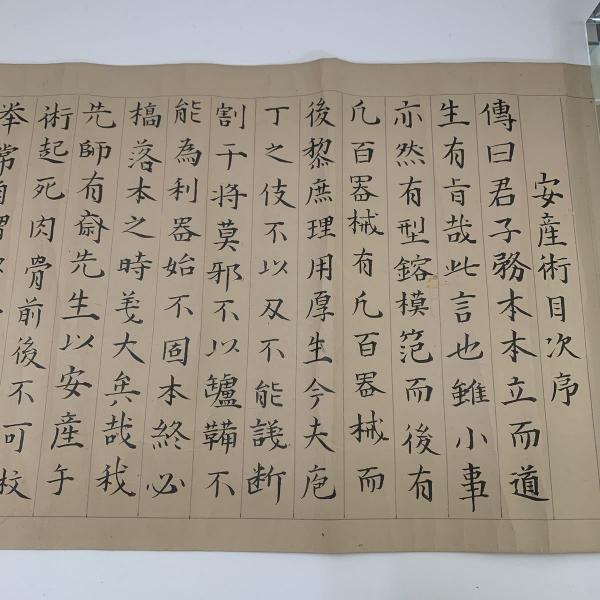 安産術目次序
傳曰君子務本本立而道
生有旨哉此言也雖小事
亦然有型鎔模范而後有
凡百器械有凡百器械而
後黎庶理用厚生今夫庖
丁之伎不以刄不能議断
割干将莫邪不以罏鞴不
能為利器始不固本終必
槁落本之時義大矣哉我
先師有斎先生以安産手
術起死肉骨前後不可枚
挙常自謂